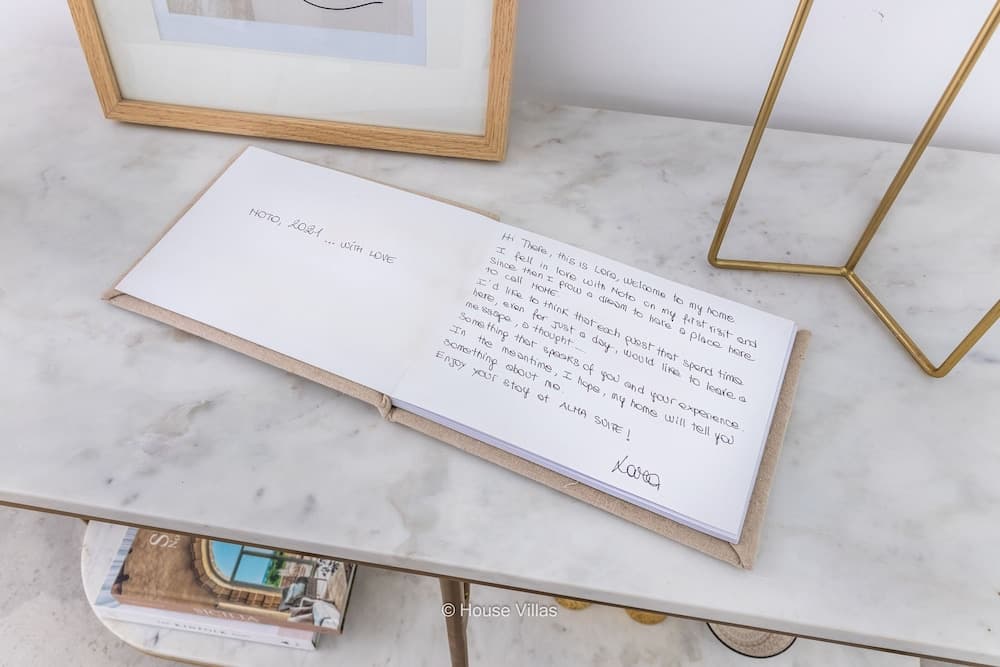 NOTO, 2021 ... WITH LOVE
Hi There, this is Lara, welcome to my home
I fell in love with Noto on my first visit and
since then I grow a dream to have a place here
to call HOME.
I'd like to think that each guest that spend time
here, even for just a day, would like to leave a
message, a thought
something that speaks of you and your experience.
In the meantime, I hope, my home will tell you
something about me.
ENJOY your stay at ALMA SUITE!
Lara
© House Villas